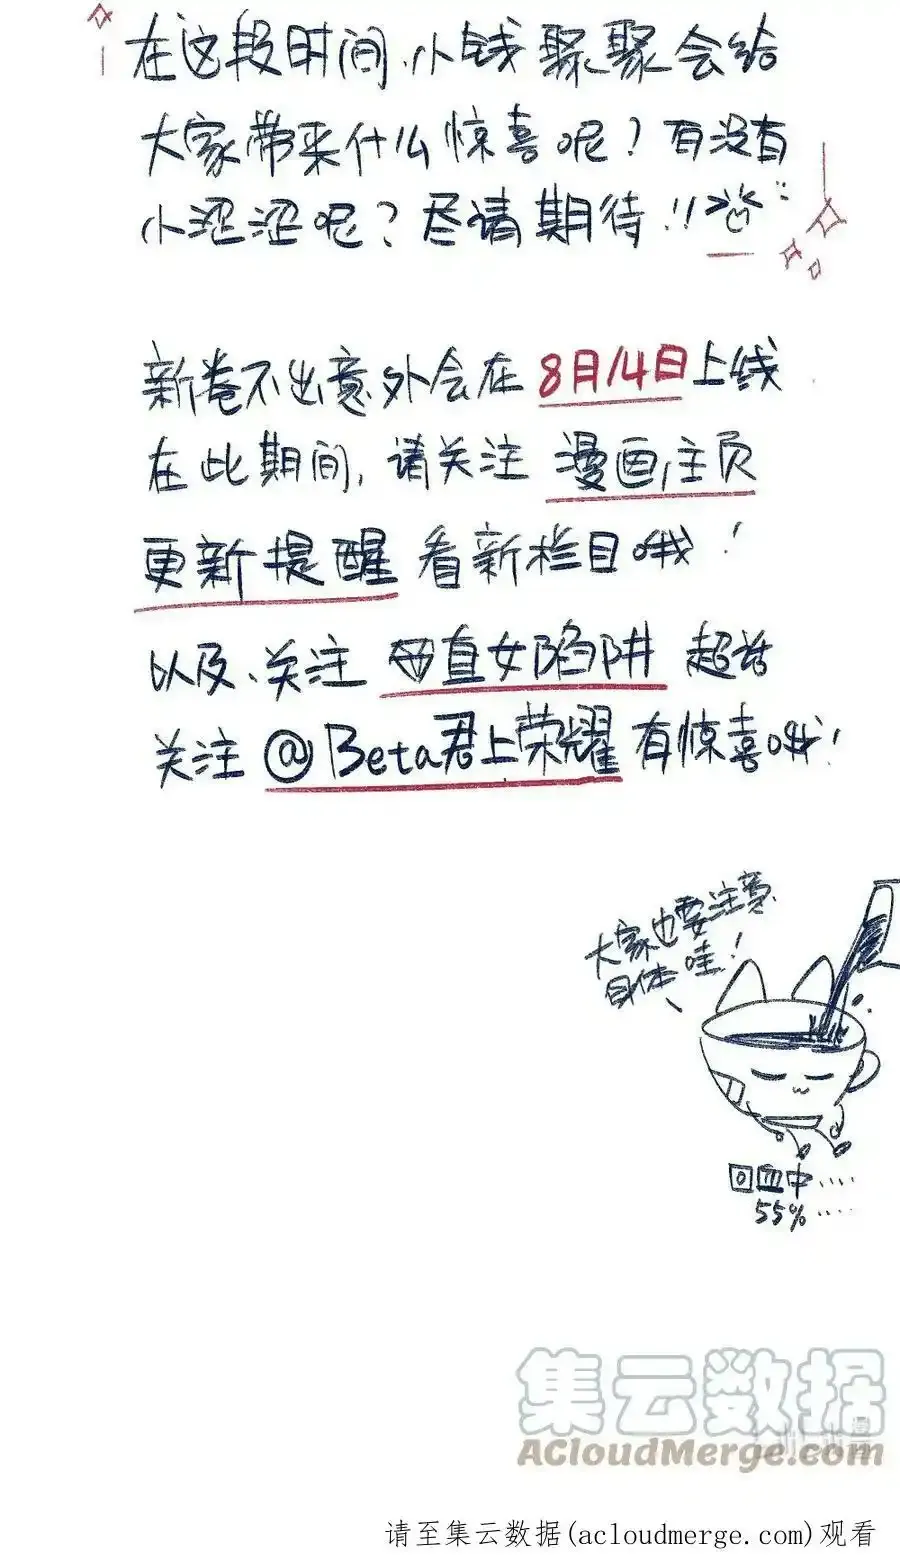 在这段时间、小钱聚聚会给
大家带来什么惊喜呢？有没有
小涩涩呢？尽请期待!!
新卷不出意外会在8月14日上线
在此期间,请关注 漫画主页
更新提醒 看新栏目哦！
以及、关注 直女陷阱 超话
关注 @Beta君上荣耀 有惊喜哦！
大家也要注意
身体哇！
回血中....
55%....
集云数据
ACloudMerge.com
请至集云数据(acloudmerge.com)观看